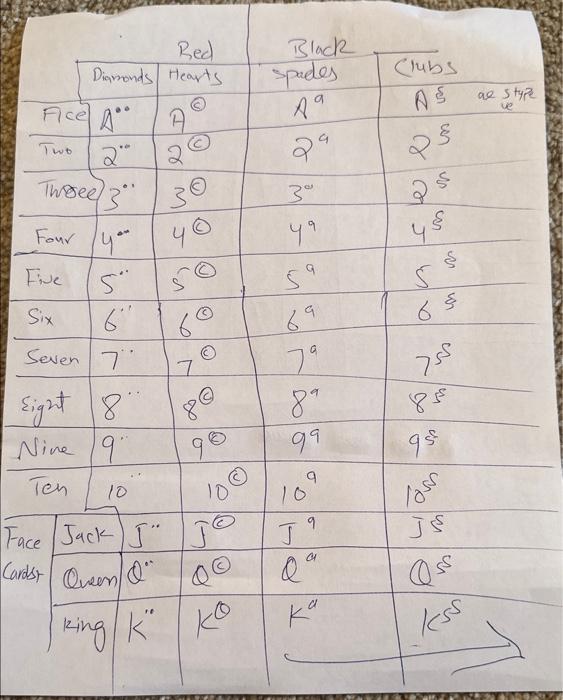 Red Black
Diamonds Hearts Spades Clubs
Ace A¨ A© Aª A§
Two 2¨ 2© 2ª 2§
Threee 3¨ 3© 3ª 2§
Four 4¨ 4© 4ª 4§
Five 5¨ 5© 5ª 5§
Six 6¨ 6© 6ª 6§
Seven 7¨ 7© 7ª 7§
Eight 8¨ 8© 8ª 8§
Nine 9¨ 9© 9ª 9§
Ten 10¨ 10© 10ª 10§
Face Jack J¨ J© Jª J§
Cards Queen Q¨ Q© Qª Q§
King K¨ K© Kª K§